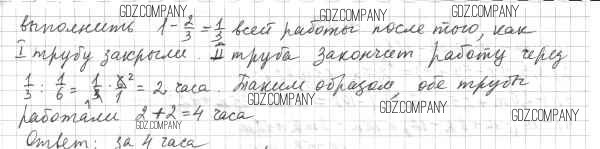 GDZ.COMPANY GDZ.COMPANY
выполнить 1 - 2/3 = 1/3 всей работы после того, как
GDZ.COMPANY
I трубу закрыли. II труба закончет работу через
GDZ.COMPANY GDZ.COMPANY
1/3 : 1/6 = 1/3 · 6/1 2 = 2 часа. Таким образом, обе трубы
GDZ.COMPANY GDZ.COMPANY GDZ.COMPANY
работали 2+2=4 часа
GDZ.COMPANY
Ответ: за 4 часа